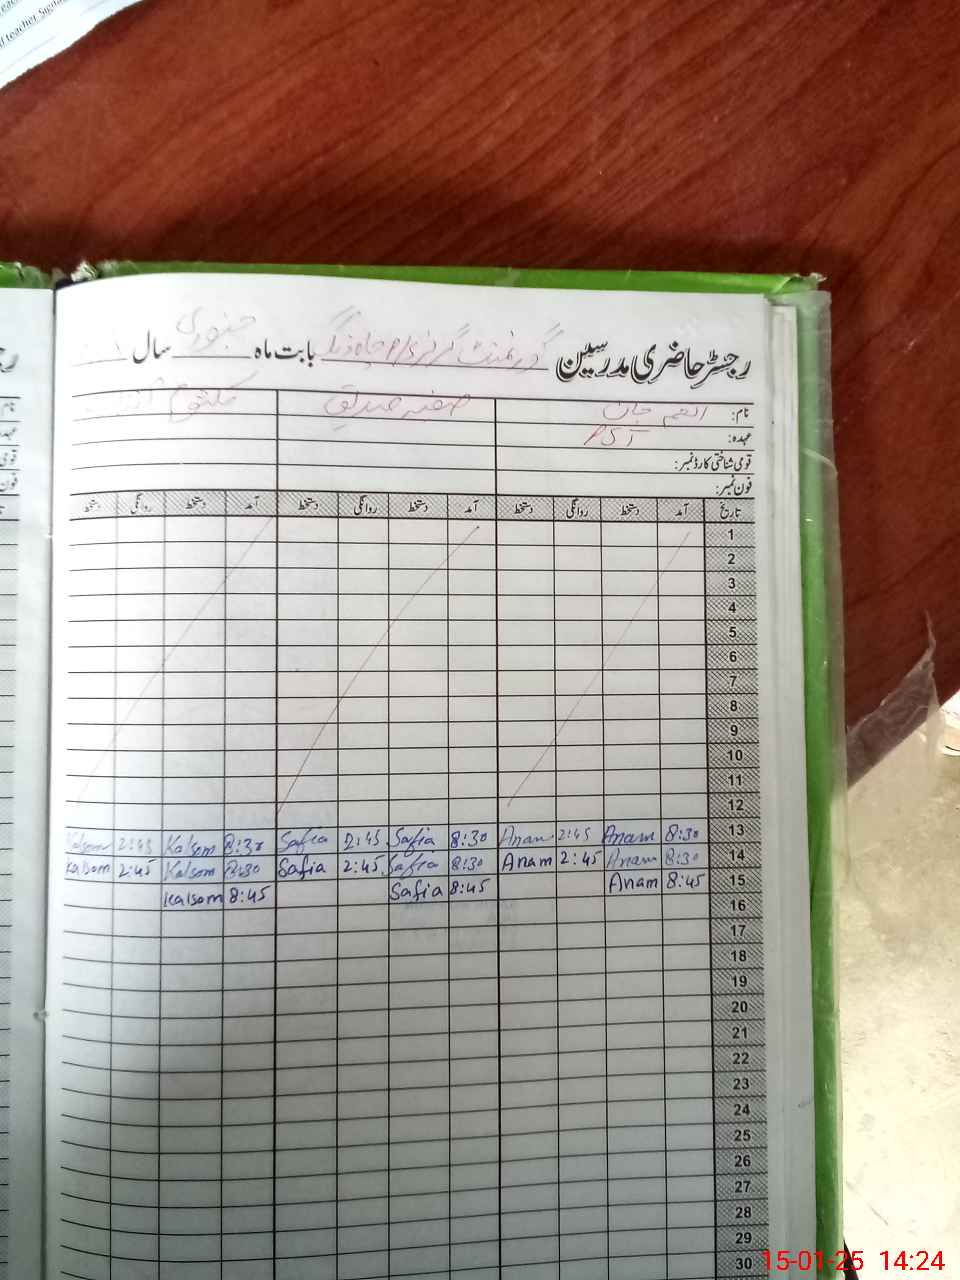 teacher Signa
رجسٹر حاضری مدرسین گورنمنٹ گرلز بابت ماہ جنوری سال
نام: انعم جان صفیہ صدیق کلثوم
عہدہ: PST
قومی شناختی کارڈ نمبر:
فون نمبر:
تاریخ آمد دستخط روانگی دستخط آمد دستخط روانگی دستخط آمد دستخط روانگی دستخط
1
2
3
4
5
6
7
8
9
10
11
12
Kalsom 2:45 Kalsom 8:30 Safia 2:45 Safia 8:30 Anam 2:45 Anam 8:30 13
Kalsom 2:45 Kalsom 8:30 Safia 2:45 Safia 8:30 Anam 2:45 Anam 8:30 14
Kalsom 8:45 Safia 8:45 Anam 8:45 15
16
17
18
19
20
21
22
23
24
25
26
27
28
29
30
15-01-25 14:24